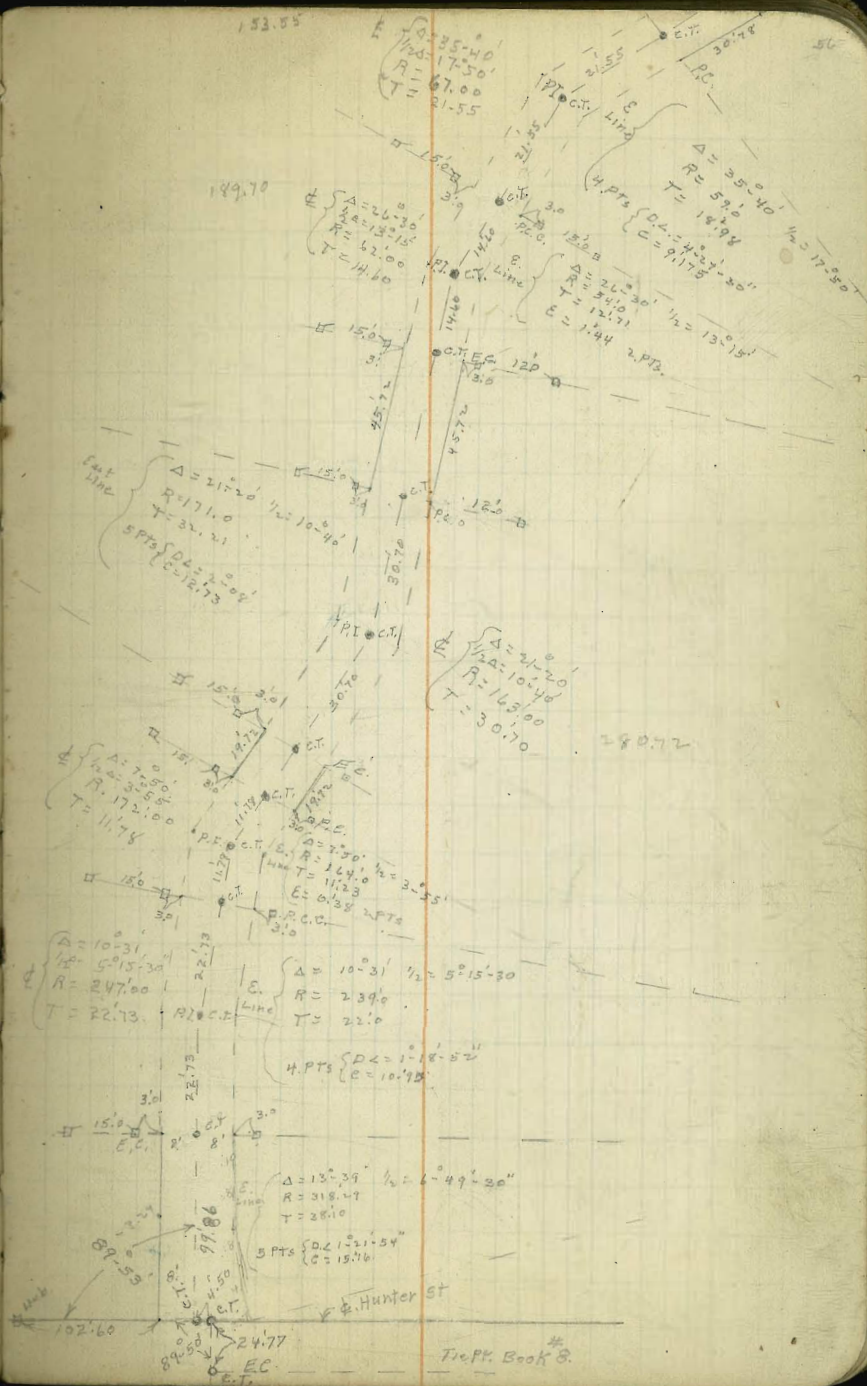 153.55
56
℄
Δ = 35°-40'
1/2Δ = 17°-50'
R = 67.00
T = 21.55
C.T.
30.78
P.C.
21.55
P.I.
C.T.
E.
Line
21.55
Δ = 35°-40'
1/2 = 17°-50'
R = 59.0
T = 18.98
4.PTS
D.L. = 4°-27'-30"
C = 9.175
15.0
3.0
C.T.
3.0
P.C.C.
15.0
189.70
℄
Δ = 26°-30'
1/2Δ = 13°-15'
R = 62.00
T = 14.60
14.60
P.I.
C.T.
E.
Line
Δ = 26°-30'
1/2 = 13°-15'
R = 54.0
T = 12.71
E = 1.44
2 PTS.
14.60
15.0
3.
C.T.
E.C.
12.0
3.0
45.72
45.72
15.0
3.0
C.T.
P.C.
12.0
East
Line
Δ = 21°-20'
1/2 = 10°-40'
R = 171.0
T = 32.21
5 PTS
D.L. = 2°-08'
C = 12.73
30.70
P.I.
C.T.
℄
Δ = 21°-20'
1/2Δ = 10°-40'
R = 163.00
T = 30.70
280.72
30.70
15.0
3.0
19.72
C.T.
15.
3.0
E.C.
℄
Δ = 7°-50'
1/2Δ = 3°-55'
R = 172.00
T = 11.78
C.T.
19.72
11.78
3.0
P.I.
C.T.
E.
Line
Δ = 7°-50'
1/2 = 3°-55'
R = 164.0
T = 11.23
E = 0.38
2 PTS
11.78
15.0
3.0
C.T.
P.C.C.
3.0
℄
Δ = 10°-31'
1/2 = 5°-15'-30"
R = 247.00
T = 22.73
22.73
P.I.
C.T.
E.
Line
Δ = 10°-31' 1/2 = 5°-15'-30
R = 239.0
T = 22.0
4.PTS
D.L. = 1°-18'-52"
C = 10.95
22.73
3.0
15.0
E.C.
8'
C.T.
8'
3.0
E.
Line
Δ = 13°-39' 1/2 = 6°-49'-30"
R = 318.29
T = 38.10
5 PTS
D.L. 1°-21'-54"
C = 15.16
99.86
89°-53'
4.50
C.T.
C.T.
℄. Hunter St
102.60
89°-50'
24.77
E.C.
C.T.
Tie Pt. Book # 8.